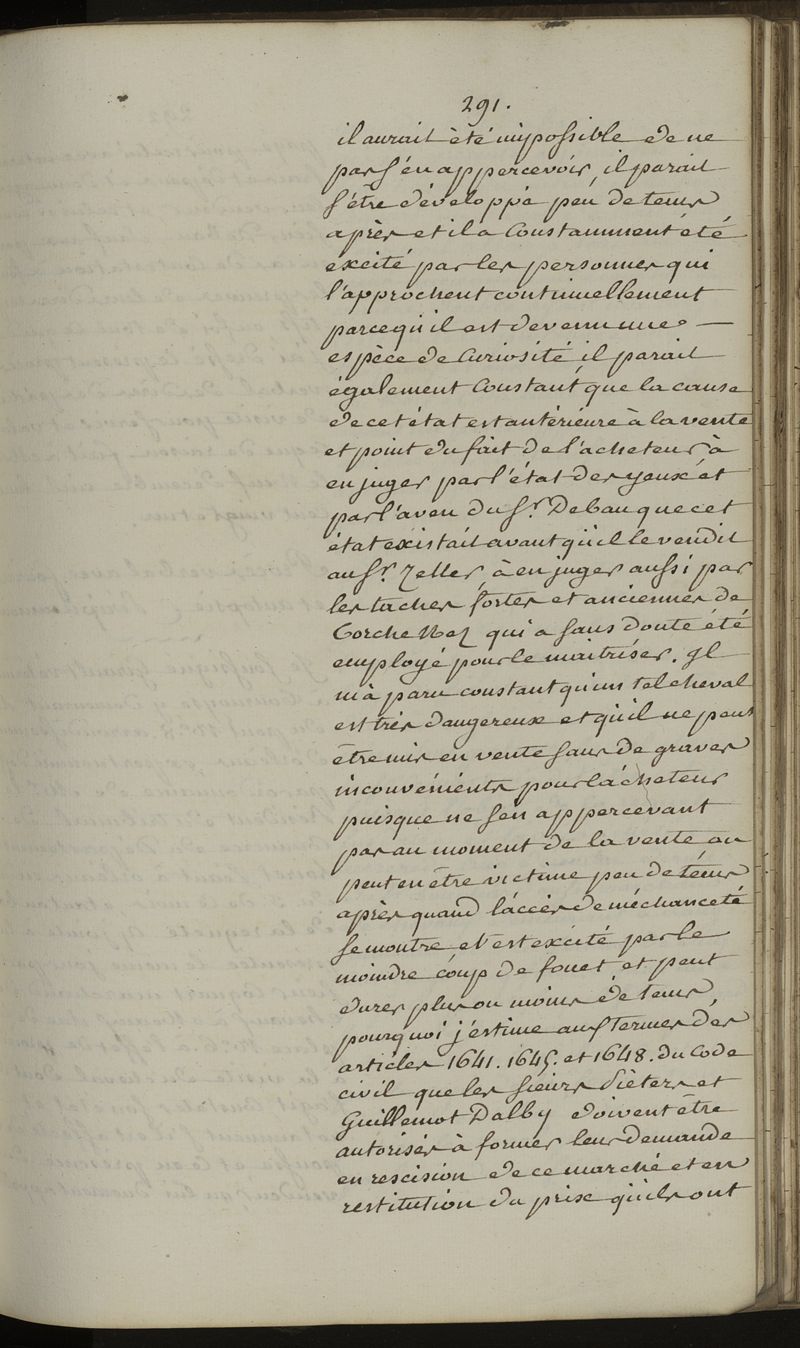 291.
il aurait été impossible de ne
pas s'en appercevoir, il parait
s'être développé peu de tems
après et il a constamment été
excité par les personnes qui
l'approchent continuellement
parcequ'il est devenu une —
espèce de curiosité il parait
également constant que la cause
de cet état est antérieure à la vente
et point du fait de l'acheteur à
en juger par l'état des yeux et
par l'aveu du Sr. Debau que cet
état existait avant qu'il le vendit
au Sr. Zeller, à en juger aussi par
les taches fortes et anciennes de
Torche Nez qui a sans doute été
employé pour le maitriser. Il
m'a paru constant qu'un tel cheval
est très dangereux et qu'il ne peut
être mis en vente sans de graves
inconvénients pour l'acheteur
puisque ne s'en appercevant
pas au moment de la vente on
peut en être victime peu de tems
après quand l'accès de méchanceté
se montre et est excité par le
moindre coup de fouet et peut
durer plus ou moins de tems,
pourquoi j'estime aux Termes des
articles 1641. 1645. et 1648. du Code
civil que les sieurs Dièters et
Guillemot Dalby doivent être
autorisés à former leur demande
en rescision de ce marché et en
restitution du prix qu'ils ont